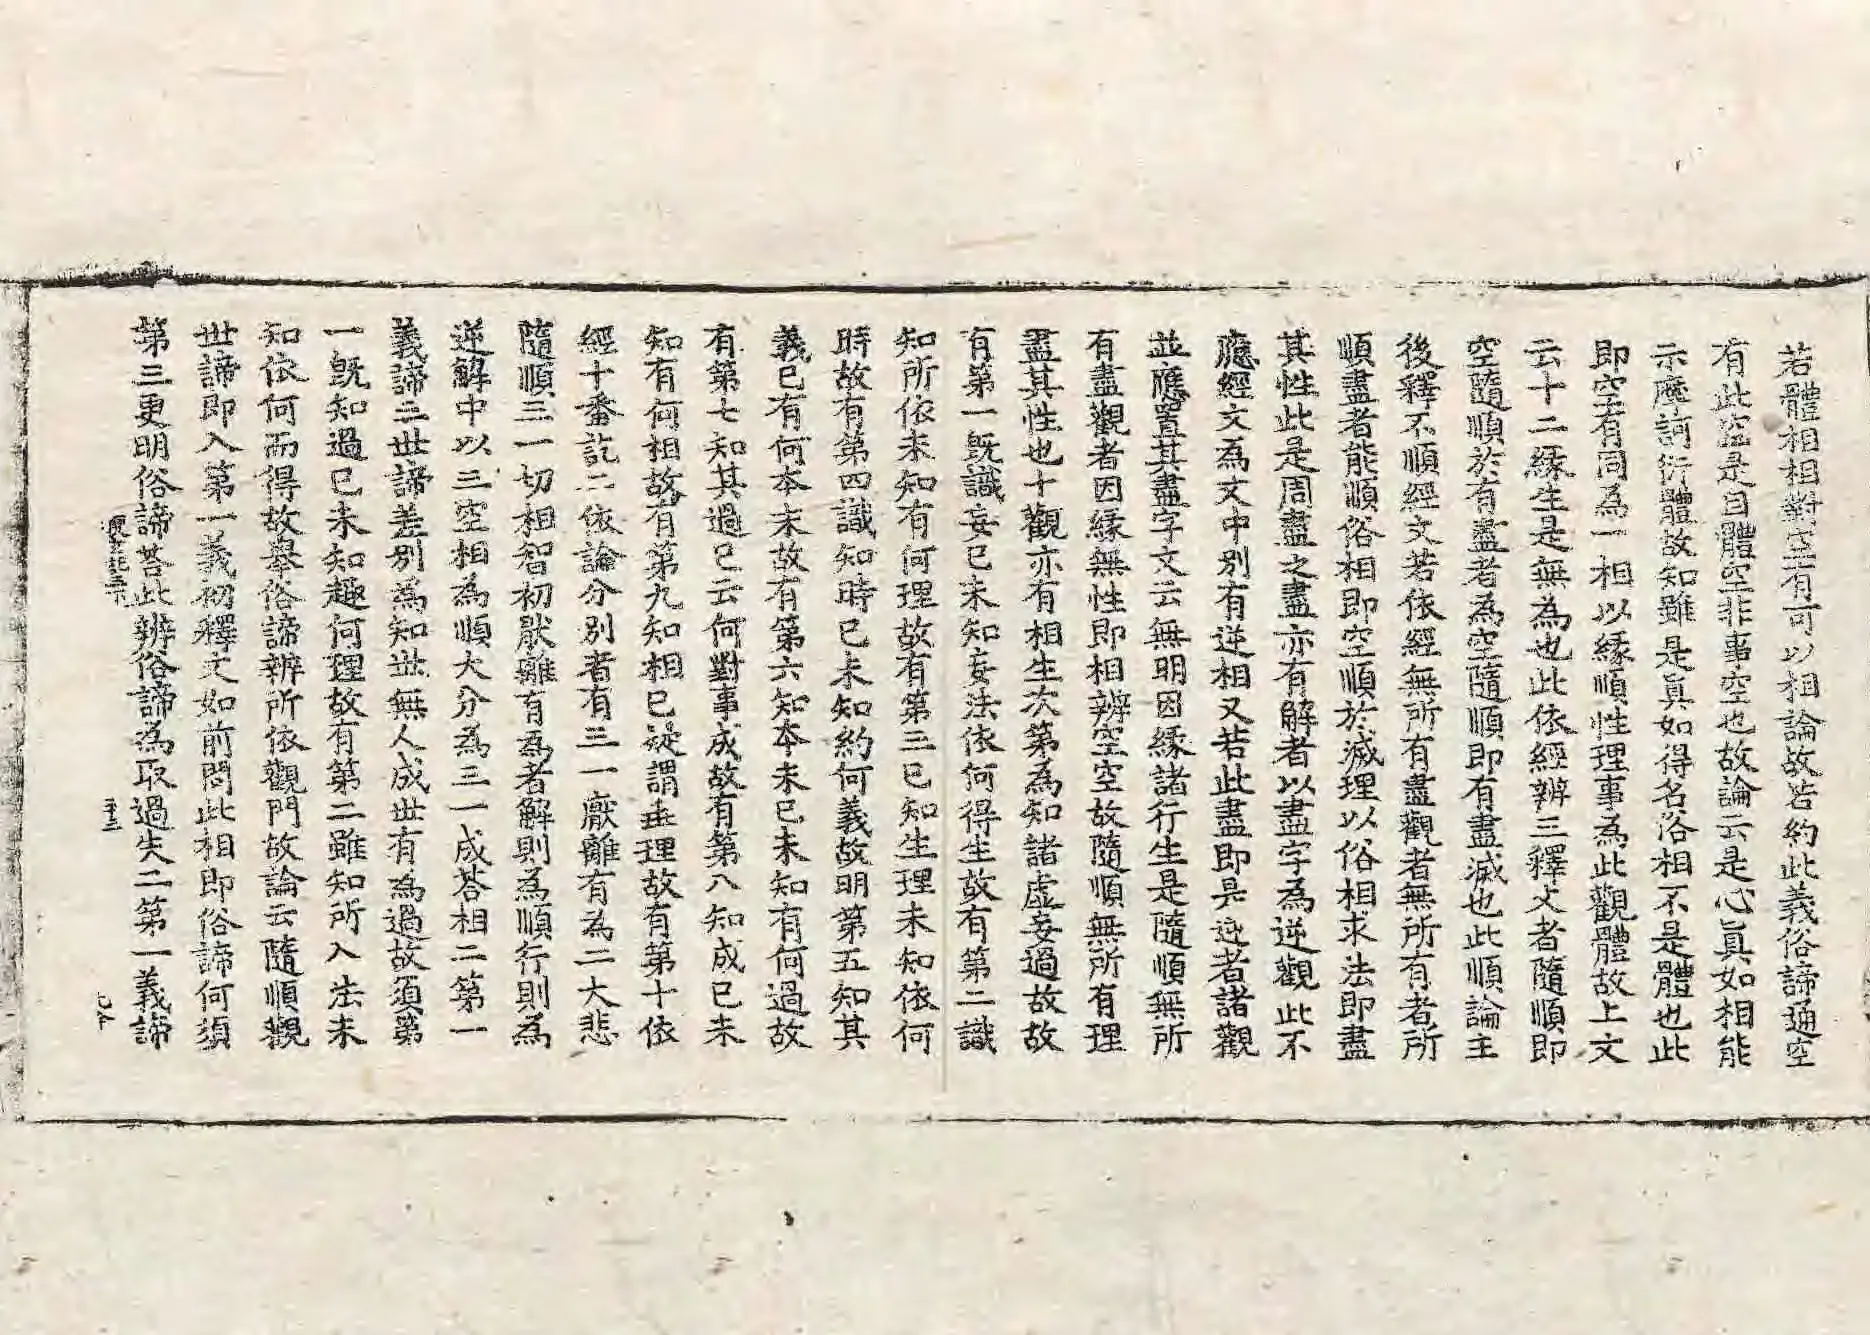 若體相相對空有可以相論故若約此義俗諦通空
有此空是自體空非事空也故論云是心真如相能
示摩訶衍體故知雖是真如得名俗相不是體也此
即空有同為一相以緣順性理事為此觀體故上文
云十二緣生是無為也此依經辨三釋文者隨順即
空隨順於有盡者為空隨順即有盡滅也此順論主
後釋不順經文若依經無所有盡觀者無所有者所
順盡者能順俗相即空順於滅理以俗相求法即盡
其性此是周盡之盡亦有解者以盡字為逆觀此不
應經文為文中別有逆相又若此盡即是逆者諸觀
並應置其盡字文云無明因緣諸行生是隨順無所
有盡觀者因緣無性即相辨空空故隨順無所有理
盡其性也十觀亦有相生次第為知諸虛妄過故故
有第一既識妄已未知妄法依何得生故有第二識
知所依未知有何理故有第三已知生理未知依何
時故有第四識知時已未知約何義故明第五知其
義已有何本末故有第六知本未已未知有何過故
有第七知其過已云何對事成故有第八知成已未
知有何相故有第九知相已疑謂乖理故有第十依
經十番訖二依論分別者有三一厭離有為二大悲
隨順三一切相智初猒離有為者解則為順行則為
逆解中以三空相為順大分為三一成荅相二第一
義諦三世諦差別為知世無人成世有為過故須第
一既知過已未知趣何理故有第二雖知所入法未
知依何而得故舉俗諦辨所依觀門故論云隨順觀
世諦即入第一義初釋文如前問此相即俗諦何須
第三更明俗諦荅此辨俗諦為取過失二第一義諦